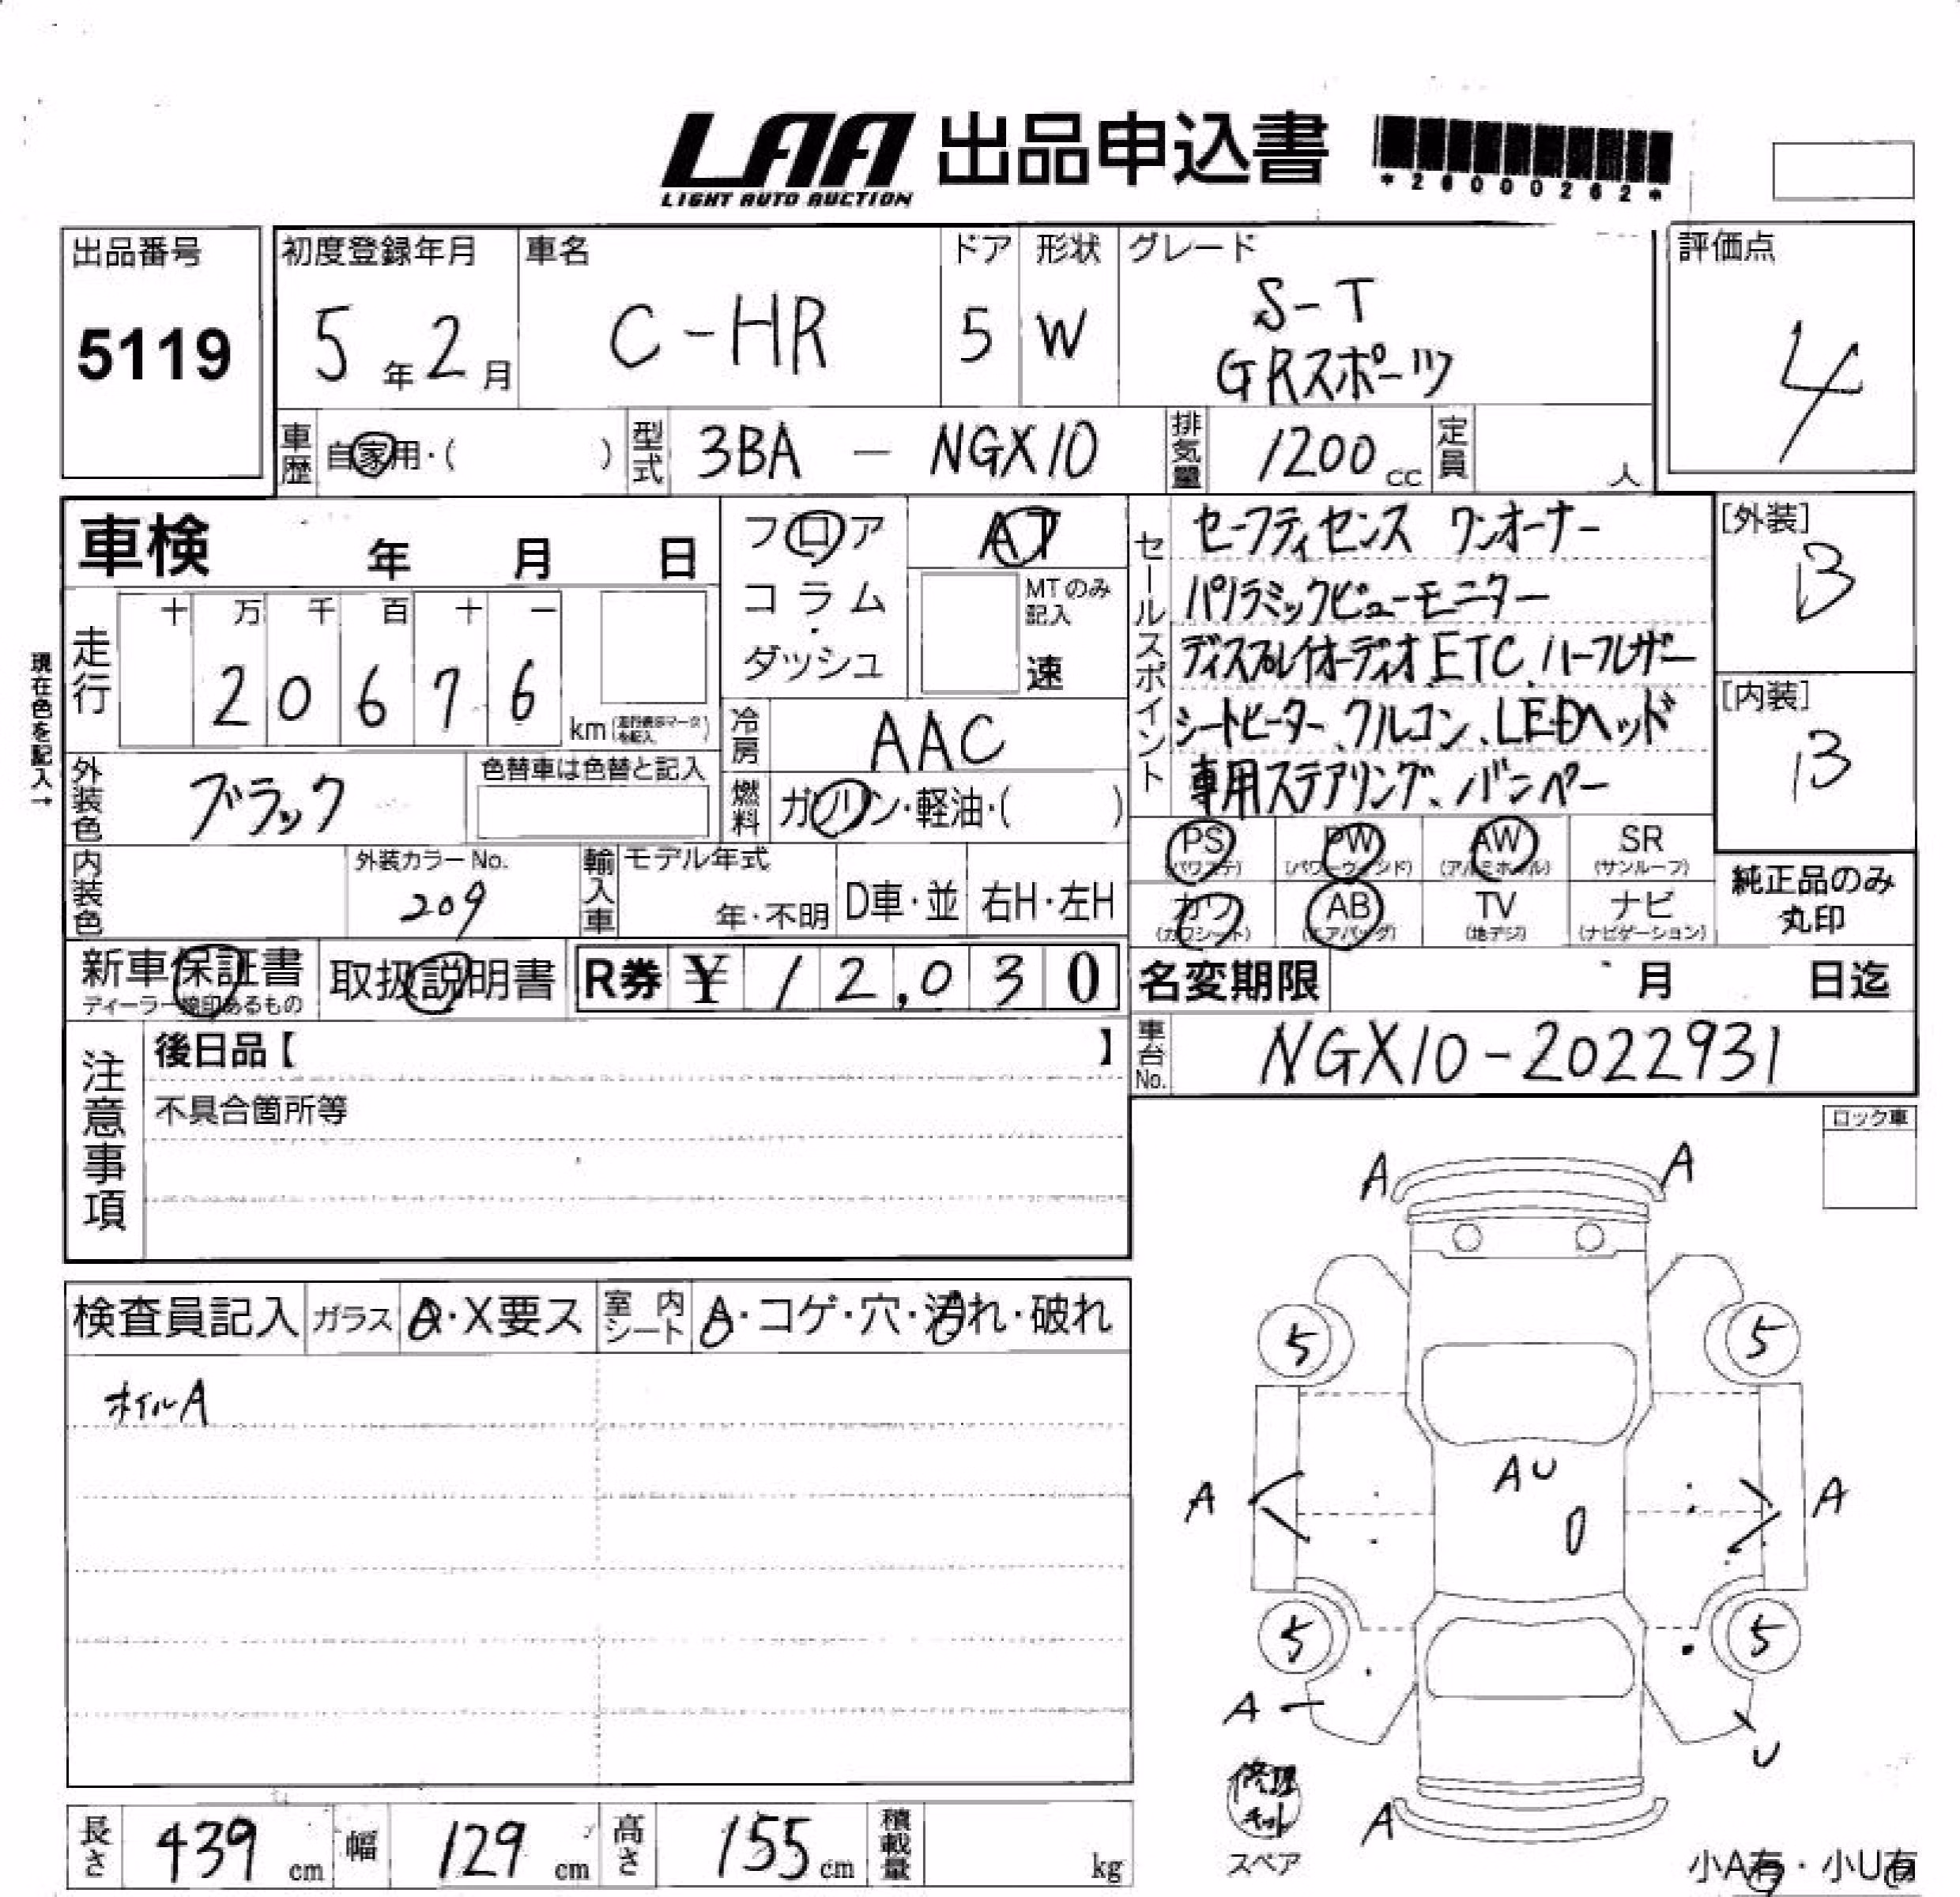 LAA 出品申込書
LIGHT AUTO AUCTION
*26000262*
出品番号
5119
初度登録年月
5年2月
車名
C-HR
ドア
5
形状
W
グレード
S-T
GRスポーツ
評価点
4
車歴 自家用・( )
型式 3BA - NGX10
排気量 1200cc
定員 人
車検 年 月 日
フロア
コラム
ダッシュ
AT
MTのみ記入
速
走行
十 万 千 百 十 一
2 0 6 7 6 km
現在色を記入→
冷房 AAC
燃料 ガソリン・軽油・( )
外装色 ブラック
色替車は色替と記入
内装色
外装カラーNo.
209
輸入車 モデル年式
年・不明
D車・並
右H・左H
セールスポイント
セーフティセンス ワンオーナー
パノラミックビューモニター
ディスプレイオーディオ ETC、ハーフレザー
シートヒーター、クルコン、LEDヘッド
専用ステアリング、バンパー
[外装]
B
[内装]
B
PS (パワステ)
PW (パワーウィンド)
AW (アルミホイル)
SR (サンルーフ)
カワ (カワシート)
AB (エアバッグ)
TV (地デジ)
ナビ (ナビゲーション)
純正品のみ
丸印
新車保証書
取扱説明書
R券 ¥12,030
名変期限 月 日迄
車台No. NGX10-2022931
注意事項
後日品【 】
不具合箇所等
ロック車
検査員記入
ガラス A・X要ス
室内シート A・コゲ・穴・汚れ・破れ
ホイルA
A A
5 5
A U
A A
5 5
A U
A
修理キット
スペア
小A有・小U有
長さ 439 cm
幅 129 cm
高さ 155 cm
積載量 kg